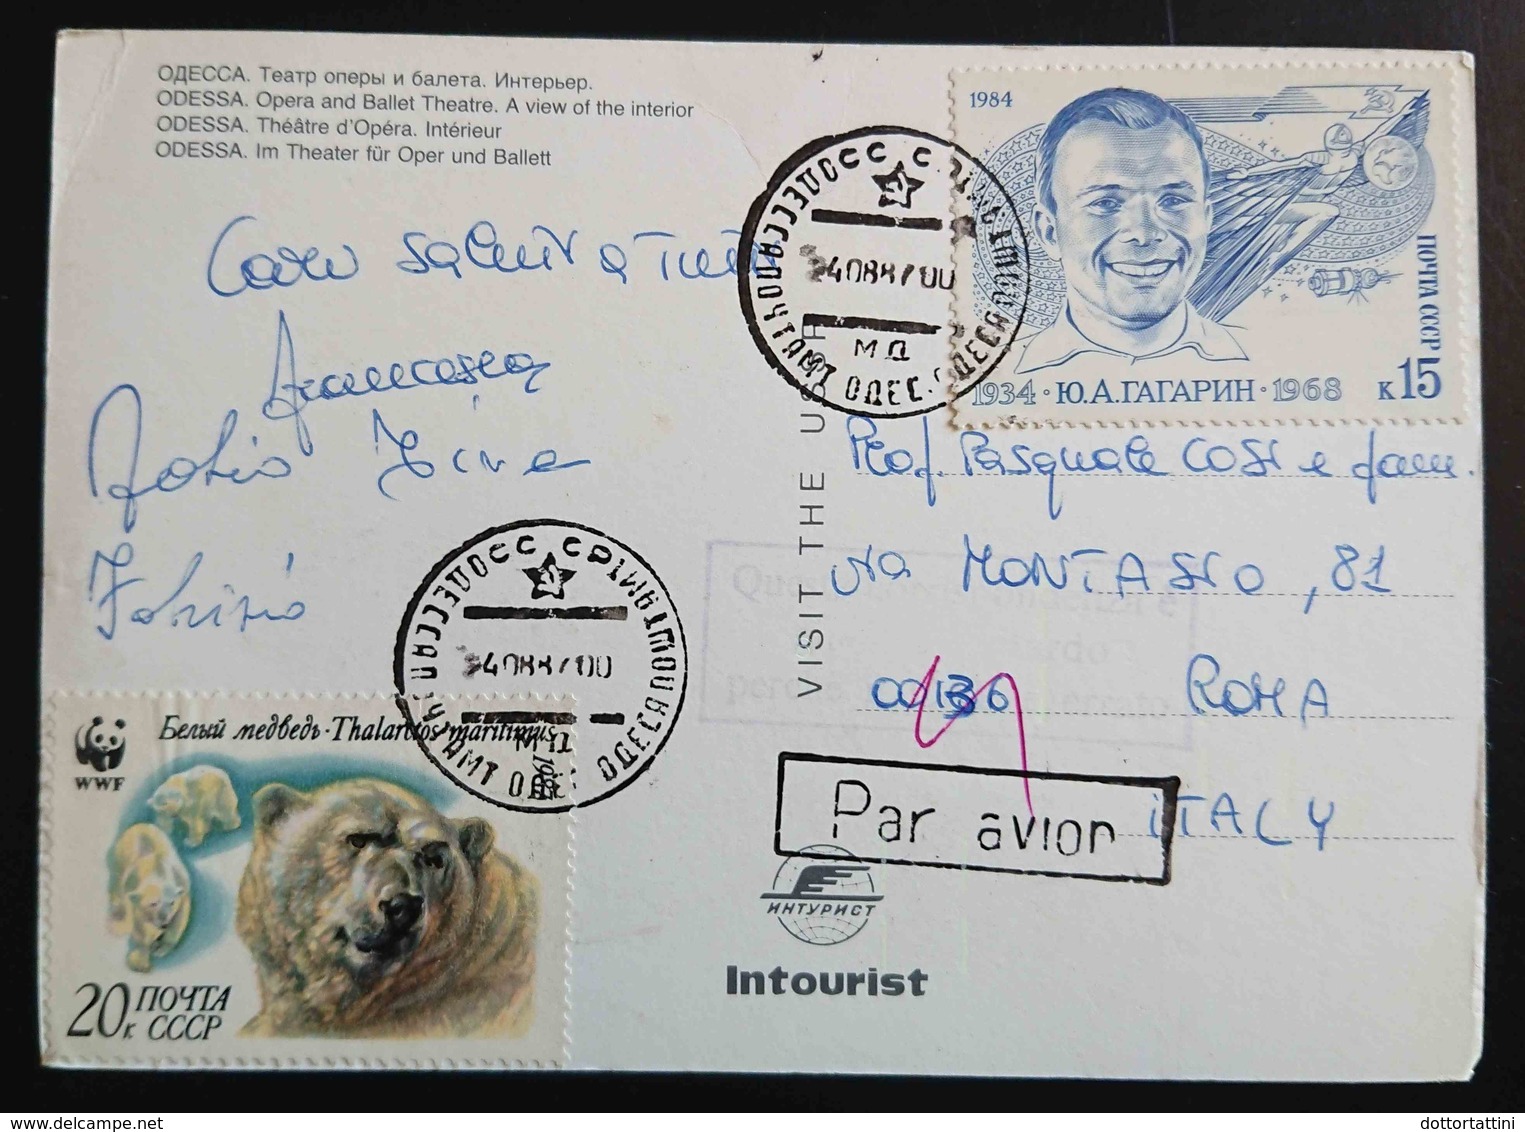 ОДЕССА. Театр оперы и балета. Интерьер.
ODESSA. Opera and Ballet Theatre. A view of the interior
ODESSA. Théâtre d'Opéra. Intérieur
ODESSA. Im Theater für Oper und Ballett
1984
ПОЧТА СССР
к 15
1934 · Ю.А.ГАГАРИН · 1968
МД
Cari saluti a tutti
Francesca
Fabrizio
VISIT THE USSR
Prof. Pasquale COSI e fam.
via MONTASIO, 81
00136 ROMA
ITALY
Par avion
ИНТУРИСТ
Intourist
МД
WWF
Белый медведь · Thalarctos maritimus
1987
20к ПОЧТА
СССР
dottortattini